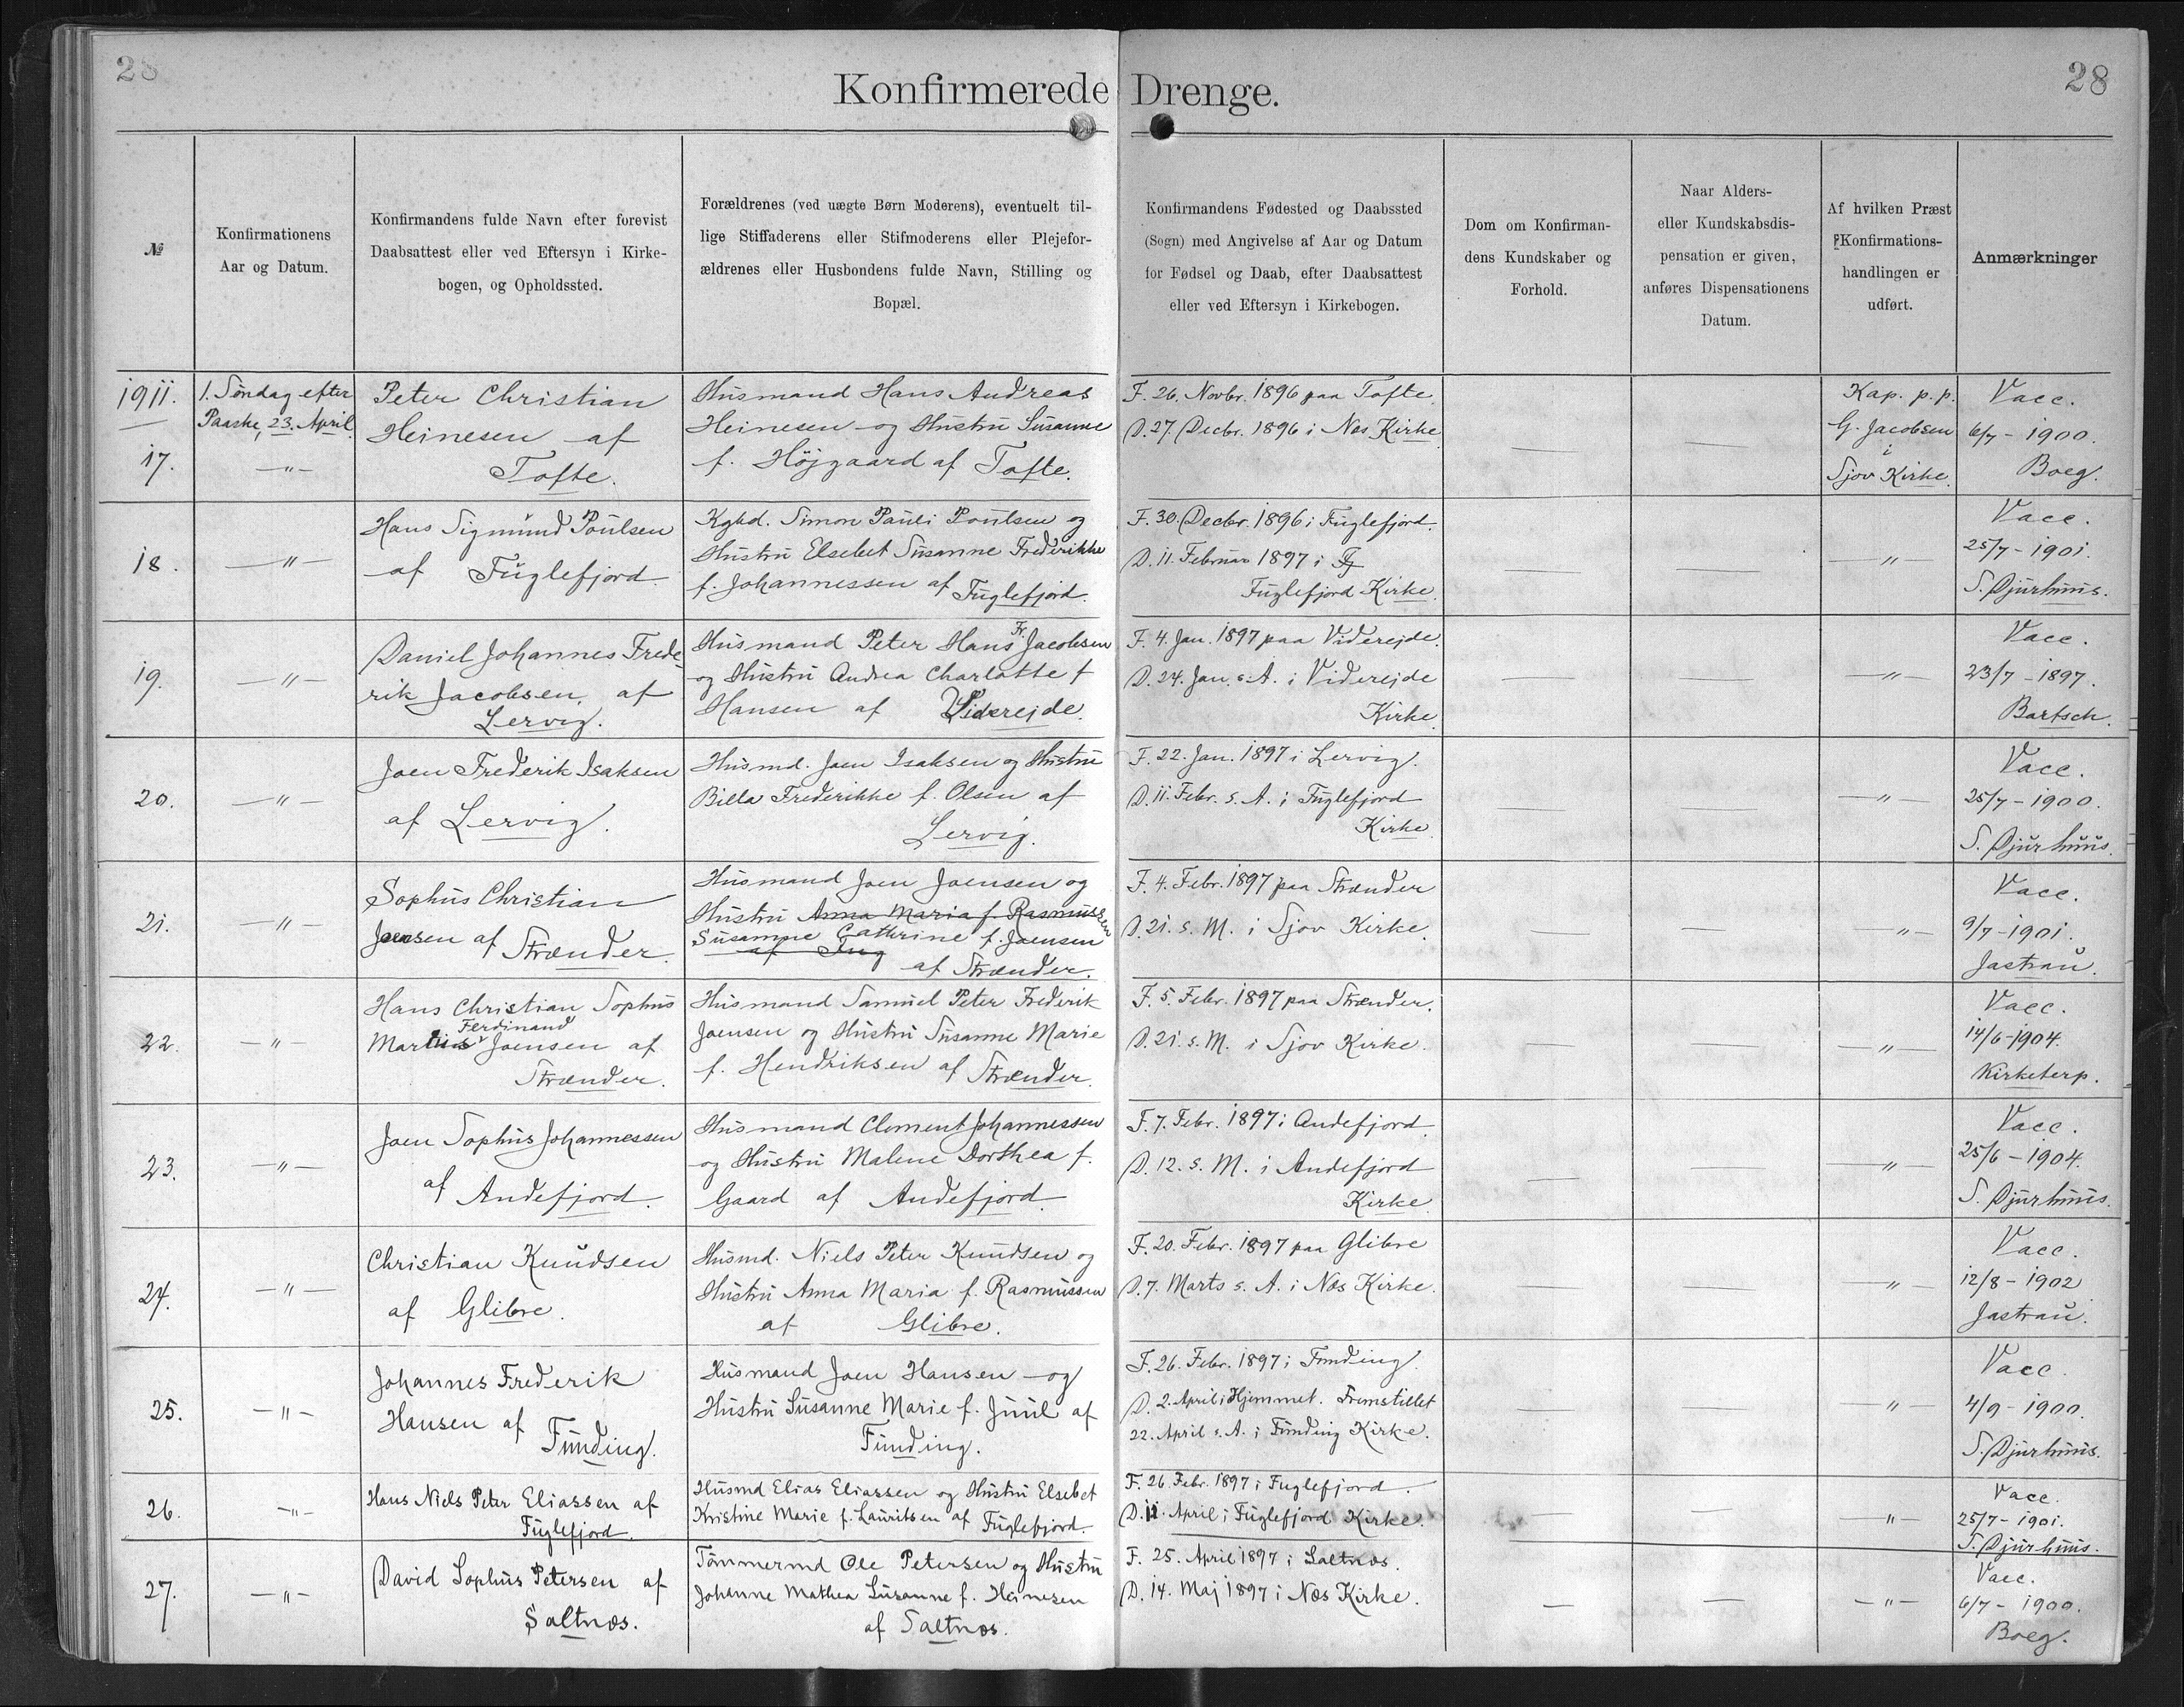 28
28
Konfirmerede Drenge.
№
Konfirmationens
Aar og Datum.
Konfirmandens fulde Navn efter forevist
Daabsattest eller ved Eftersyn i Kirke-
bogen, og Opholdssted.
Forældrenes (ved uægte Børn Moderens), eventuelt til-
lige Stiffaderens eller Stifmoderens eller Plejefor-
ældrenes eller Husbondens fulde Navn, Stilling og
Bopæl.
Konfirmandens Fødested og Daabssted
(Sogn) med Angivelse af Aar og Datum
for Fødsel og Daab, efter Daabsattest
eller ved Eftersyn i Kirkebogen.
Dom om Konfirman-
dens Kundskaber og
Forhold.
Naar Alders-
eller Kundskabsdis-
pensation er given,
anføres Dispensationens
Datum.
Af hvilken Præst
Konfirmations-
handlingen er
udført.
Anmærkninger
1911.
17.
1. Søndag efter
Paaske, 23. April
—"—
Peter Christian
Heinesen af
Tofte.
Husmand Hans Andreas
Heinesen og Hustru Susanne
f. Højgaard af Tofte.
F. 26. Novbr. 1896 paa Tofte.
D. 27. Decbr. 1896 i Næs Kirke
—
—
Kap. p. p.
G. Jacobsen
i
Sjov Kirke.
Vacc.
6/7 - 1900.
Boeg.
18.
—"—
Hans Sigmund Poulsen
af Fuglefjord.
Kgbd. Simon Pauli Poulsen og
Hustru Elsebet Susanne Frederikke
f. Johannessen af Fuglefjord.
F. 30. Decbr. 1896 i Fuglefjord.
D. 11. Februar 1897 i Fg
Fuglefjord Kirke.
—
—
—"—
Vacc.
25/7 - 1901.
S. Djurhuus.
19.
—"—
Daniel Johannes Frede
rik Jacobsen, af
Lervig.
Husmand Peter Hans Fr. Jacobsen
og Hustru Andrea Charlotte f
Hansen af Viderejde.
F. 4. Jan. 1897 paa Viderejde.
D. 24. Jan. s. A. i Viderejde
Kirke
—
—
—"—
Vacc.
23/7 - 1897.
Bartsch.
20.
—"—
Joen Frederik Isaksen
af Lervig.
Husmd. Joen Isaksen og Hustru
Billa Frederikke f. Olsen af
Lervig.
F. 22. Jan. 1897 i Lervig.
D. 11. Febr. s. A. i Fuglefjord
Kirke.
—
—
—"—
Vacc.
25/7 - 1900.
S. Djurhuus.
21.
—"—
Sophus Christian
Joensen af Strænder.
Husmand Joen Joensen og
Hustru Anna Maria f. Rasmussen
Susanne Cathrine f. Joensen
af Fug
af Strænder.
F. 4. Febr. 1897 paa Strænder
D. 21. s. M. i Sjov Kirke.
—
—
—"—
Vacc.
9/7 - 1901.
Jastrau.
22.
—"—
Hans Christian Sophus
Ferdinand
Marius Joensen af
Strænder.
Husmand Samuel Peter Frederik
Joensen og Hustru Susanne Marie
f. Hendriksen af Strænder.
F. 5. Febr. 1897 paa Strænder.
D. 21. s. M. i Sjov Kirke.
—
—
—"—
Vacc.
14/6 - 1904.
Kirketerp.
23.
—"—
Joen Sophus Johannessen
af Andefjord.
Husmand Clement Johannessen
og Hustru Malene Dorthea f.
Gaard af Andefjord.
F. 7. Febr. 1897 i Andefjord.
D. 12. s. M. i Andefjord
Kirke
—
—
—"—
Vacc.
25/6 - 1904.
S. Djurhuus.
24.
—"—
Christian Knudsen
af Glibre.
Husmd. Niels Peter Knudsen og
Hustru Anna Maria f. Rasmussen
af Glibre.
F. 20. Febr. 1897 paa Glibre
D. 7. Marts s. A. i Næs Kirke.
—
—
"
Vacc.
12/8 - 1902
Jastrau.
25.
—"—
Johannes Frederik
Hansen af
Funding.
Husmand Joen Hansen og
Hustru Susanne Marie f. Juul af
Funding.
F. 26. Febr. 1897 i Funding.
D. 2. April i Hjemmet. Fremstillet
22. April s. A. i Funding Kirke.
—
—
—"—
Vacc.
4/9 - 1900.
S. Djurhuus.
26.
—"—
Hans Niels Peter Eliassen af
Fuglefjord.
Husmd Elias Eliassen og Hustru Elsebet
Kristine Marie f. Lauritsen af Fuglefjord.
F. 26. Febr. 1897 i Fuglefjord.
D. 11. April i Fuglefjord Kirke.
—
—
—"—
Vacc.
25/7 - 1901.
S. Djurhuus.
27.
—"—
David Sophus Petersen af
Saltnæs.
Tømmermd Ole Petersen og Hustru
Johanne Mathea Susanne f. Heinesen
af Saltnæs.
F. 25. April 1897 i Saltnæs.
D. 14. Maj 1897 i Næs Kirke.
—
—
—"—
Vacc.
6/7 - 1900.
Boeg.